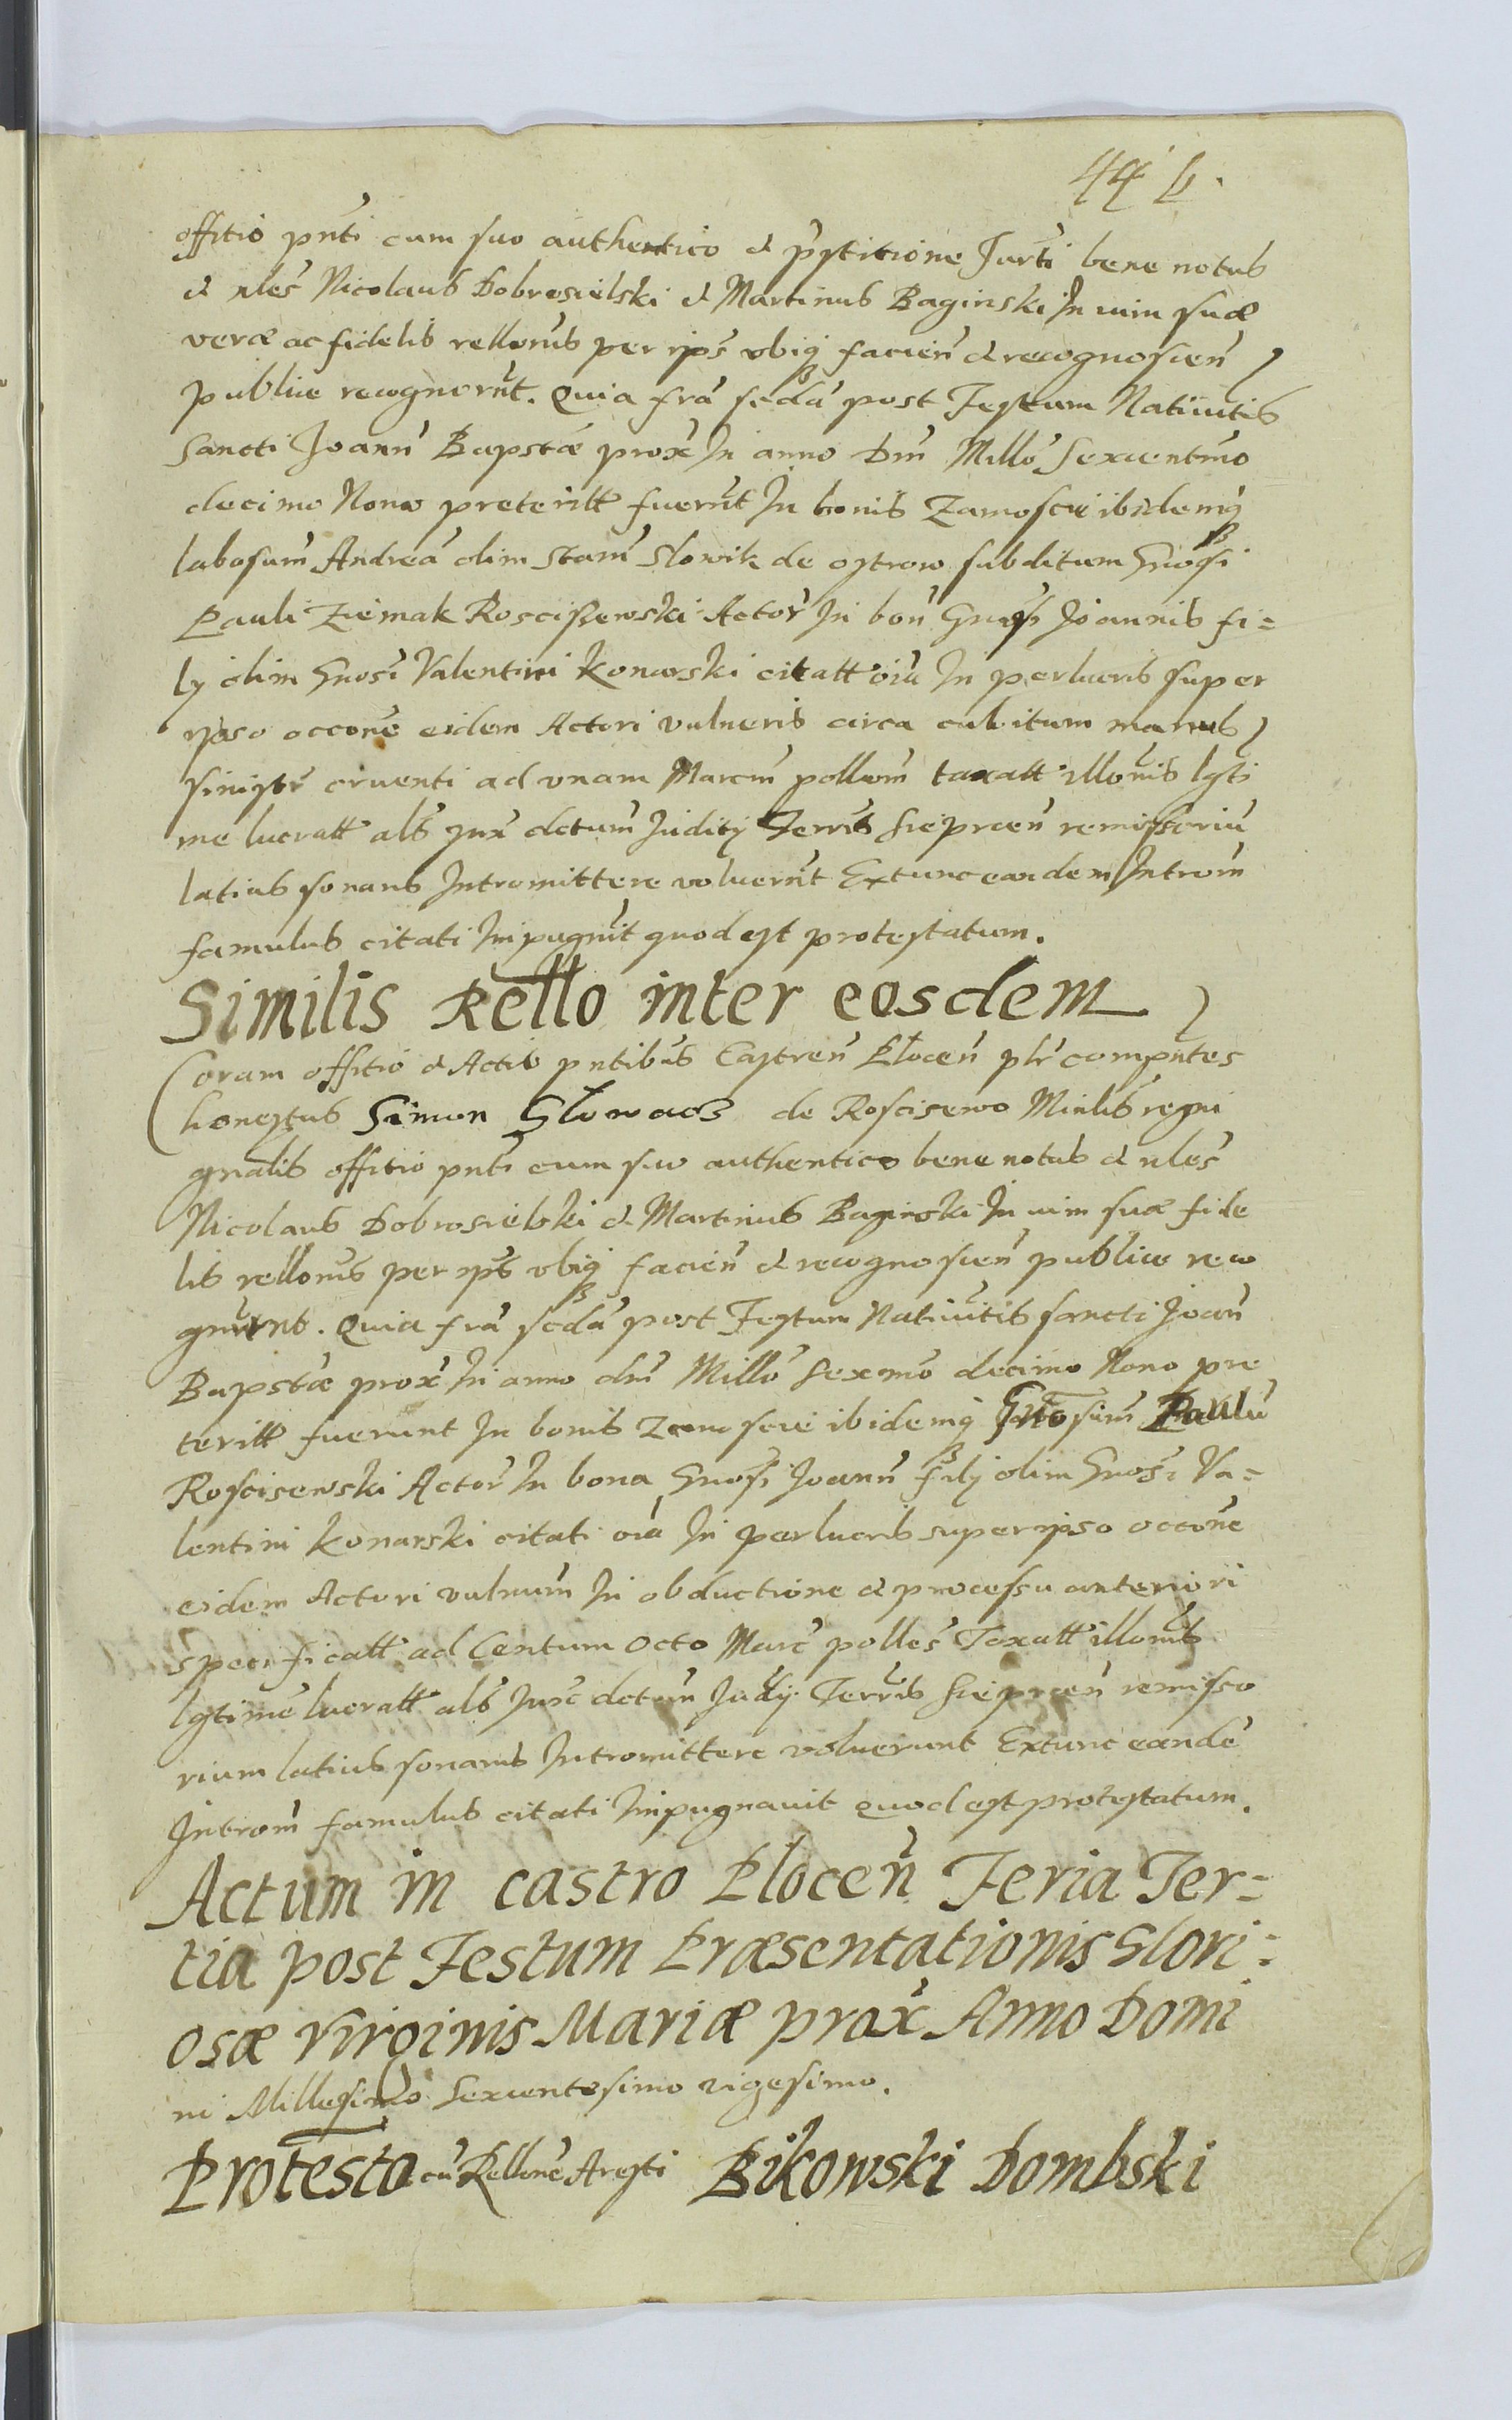 44 b.
offitio pn̄ti cum suo authentico & p̄stitione Jur̄ti bene notus
& nles̄ Nicolaus Dobrosielski & Martinus Baginski In uim suæ
veræ ac fidelis rellonis per ip̄s vbiq facien̄ & recognoscen̄
publice recognorūt. Quia frā scdā post Festum Natiuitis
Sancti Joann̄ Bapstæ prox̄ In anno Dn̄i Millō Sexcentmō
decimo Nono preteritt fuerūt In bonis Zamoscie ibidemq
labosum̄ Andreā olim Stan̄i Slowik de ostrow subditum Gnosi
Pauli Ziemak Roscissewski Actor̄ In bon̄ Gnosi Joannis fi=
ly olim Gnosi Valentini Konarski citatt oiā In perlucris super
ipso occone eidem Actori vulneris circa cubitum manus
sinistr̄ cruenti ad vnam Marcm̄ pollom̄ taxatt illonis lgti
me lucratt als̄ Jux̄ dctum̄ Judity Terris Sieprcen̄ remissoriū
latius sonans Intromittere voluerūt Extunc eandem Introm̄
famulus citati Impugnūit quod est protestatum.
Similis Rello inter eosdem
Coram offitio & Actis pntibus Castren̄ Plocen̄ plr̄ compn̄tes
honestus Simon Slowacz de Roscisewo Minlis regni
gnalis offitio pnti cum suo authentico bene notus & nles̄
Nicolaus Dobrosielski & Martinus Baginski In uim suæ fide
lis rellonis per ip̄s vbiq facien̄ & recognoscen̄ publice reco
gnrunt. Quia frā scdā post Festum Natiuitis sancti Joan̄
Bapstæ prox̄ In anno dn̄i Millō Sexmō decimo Nono pre
teritt fuerunt In bonis Zamoscie ibidemq Gnosum̄ Paulū
Roscisewski Actor̄ In bona Gnosi Joann̄ fily olim Gnosi Va=
lentini Konarski citati oiā In perlucris super ipso occone
eidem Actori vulnum̄ In obductione & processu anteriori
specificatt ad Centum Octo Marc̄ polles̄ Taxatt illonis
lgtime lucratt als̄ Jux̄ dctum̄ Judy Terris Sieprcen̄ remisso
rium latius sonans Intromittere voluerunt Extunc eandē
Introm̄ famulus citati Impugnauit quod est protestatum.
Actum in castro Plocen̄ Feria Ter=
tia post Festum Præsentationis Glori=
osæ Virginis Mariæ prox̄ Anno Domi
ni Millesimo Sexcentesimo vigesimo.
Protesto cū Rellone Aresti Bikowski Dombski